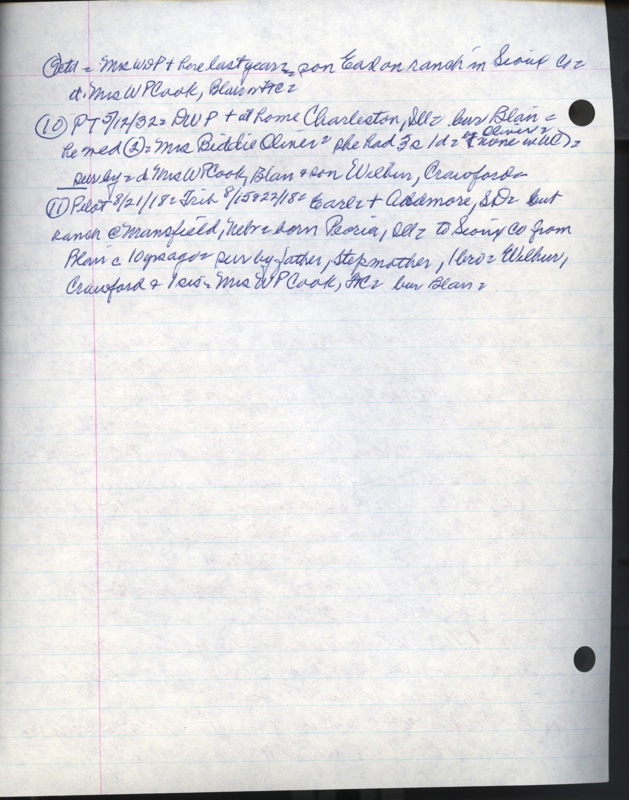 = Mrs WDP + here last year = son Earl on ranch in Sioux Co =
d. Mrs W P Cook, Blair + FtC =
(10) PT 5/12/32 = DWP + at home Charleston, Ill = bur Blair =
he med (2) = Mrs Biddie Oliver = she had 3 s 1 d = "Oliver" = (none in WC) =
surv by = d Mrs W P Cook, Blair + son Wilbur, Crawford =
(11) Pilot 8/21/18 = Trib 8/15 + 22/18 = Earl = + Ardmore, SD = but
ranch @ Mansfield, Nebr = born Peoria, Ill = to Sioux Co from
Blair c 10 yrs ago = surv by father, stepmother, 1 bro = Wilbur,
Crawford & 1 sis = Mrs W P Cook, FtC = bur Blair =